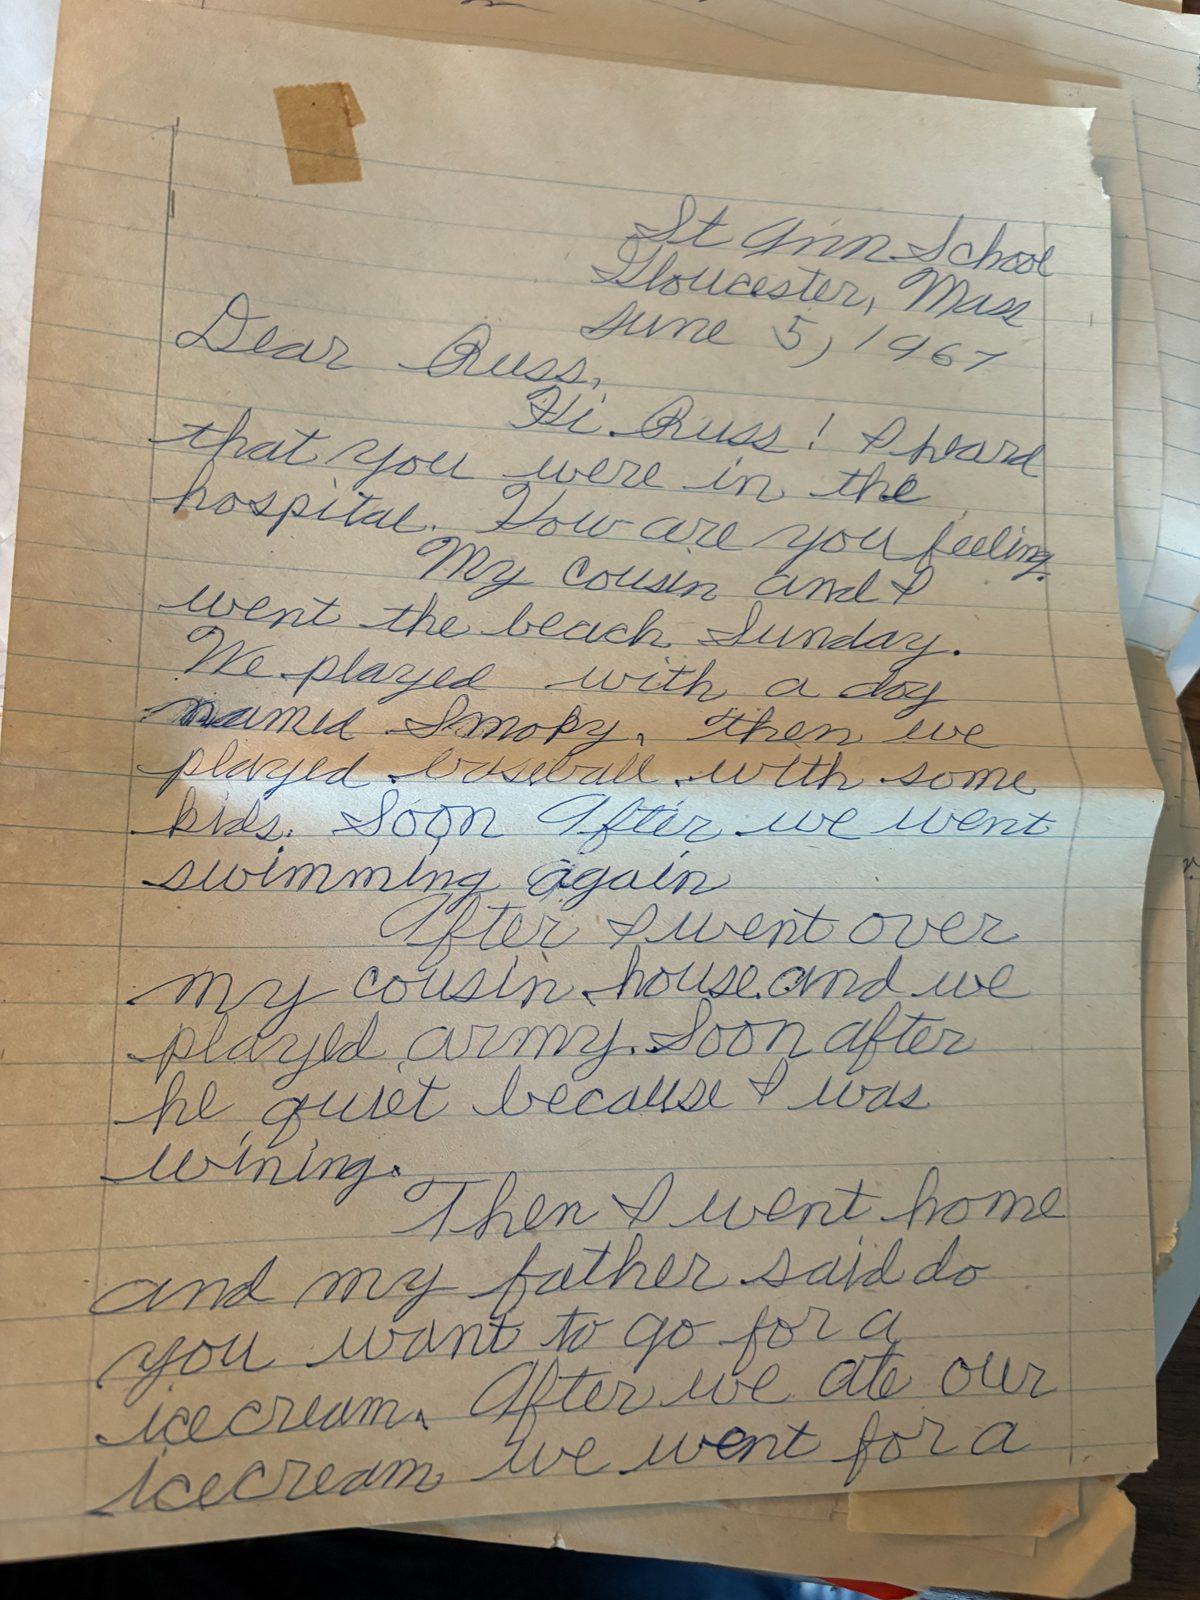 St Ann School
Gloucester, Mass
June 5, 1967
Dear Russ,
Hi Russ! I heard
that you were in the
hospital. How are you feeling.
My cousin and I
went the beach Sunday.
We played with a dog
named Smoky. Then we
played baseball with some
kids. Soon After we went
swimming again
After I went over
my cousin house and we
played army. Soon after
he quiet because I was
wining.
Then I went home
and my father said do
you want to go for a
icecream. After we ate our
icecream we went for a